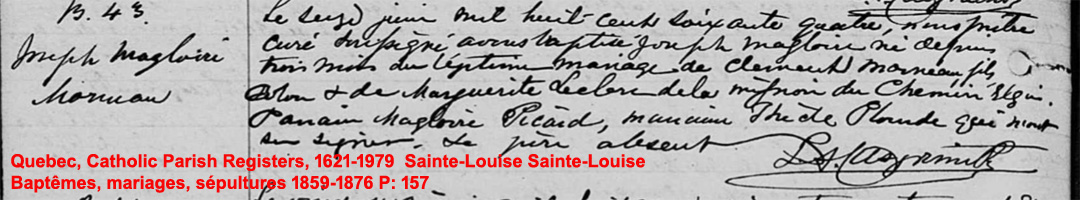 B. 43.
Joseph Magloire
Morneau
Le seize juin mil huit cent soixante quatre, nous prêtre
curé soussigné avons baptisé Joseph Magloire né depuis
trois mois du légitime mariage de Clement Morneau, fils
Colon & de Marguerite Leclerc de la mission du Chemin Elgin.
Parrain Magloire Picard, marraine Thècle Plourde qui n'ont
su signer. Le père absent
Quebec, Catholic Parish Registers, 1621-1979 Sainte-Louise Sainte-Louise
Baptêmes, mariages, sépultures 1859-1876 P: 157